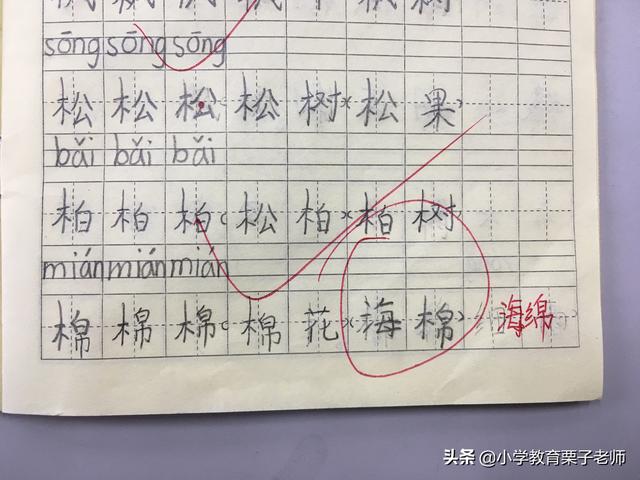 sōng sōng sōng
松 松 松（松 树）（松 果）
bǎi bǎi bǎi
柏 柏 柏（松 柏）（柏 树）
mián mián mián
棉 棉 棉（棉 花）（海 棉） 海绵
头条 @小学教育栗子老师